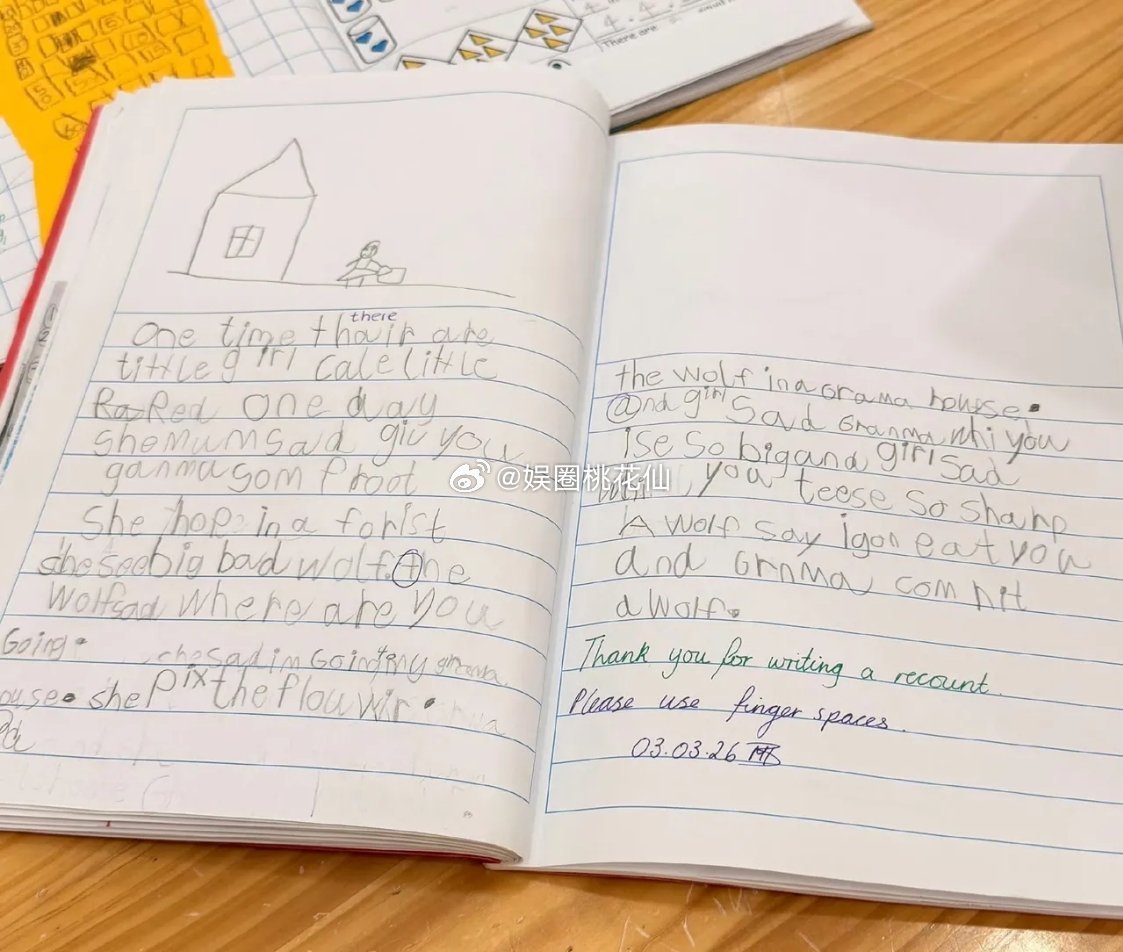 There are
there
One time thair are
tittle girl cale little
Red One day
she mum sad giv you
ganma som froot
She hop in a forist
she see big bad wolf. the
wolf sad where are you
Going.
she sad im Going my
ouse. she pix the flouwir.
the wolf in a Grama houpse.
and girl sad Granma whi you
ise so big and girl sad
you teese so sharp
A wolf say i gon eat you
and Grnma com hit
a wolf.
Thank you for writing a recount.
Please use finger spaces.
03.03.26
@娱圈桃花仙